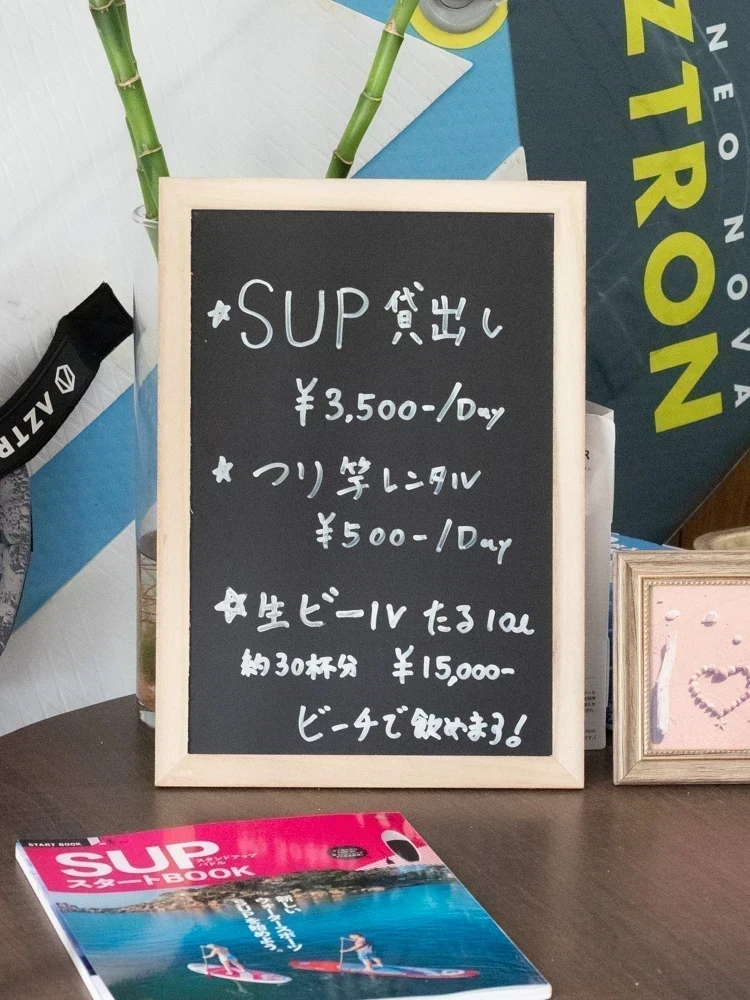 NEO NOVA
AZTRON
AZTR
☆SUP 貸出し
¥3,500-/Day
☆ つり竿レンタル
¥500-/Day
☆生ビール たる10ℓ
約30杯分 ¥15,000-
ビーチで飲めます!
START BOOK
SUP スタンドアップ
パドル
スタートBOOK